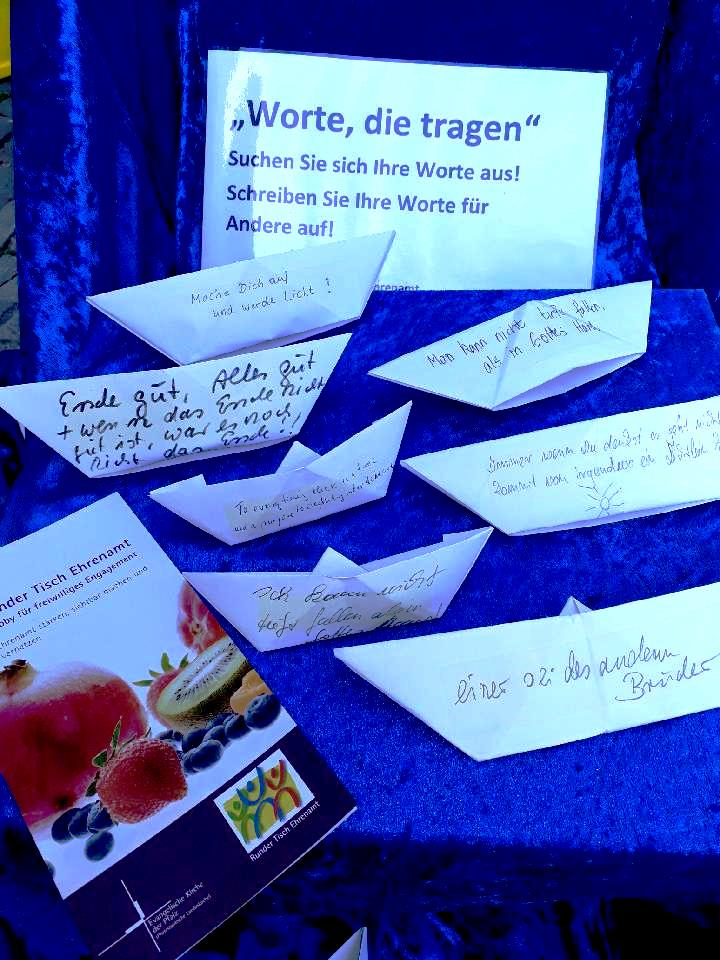 „Worte, die tragen“
Suchen Sie sich Ihre Worte aus!
Schreiben Sie Ihre Worte für
Andere auf!
Mache Dich auf
und werde Licht !
Man kann nicht tiefer fallen,
als in Gottes
Ende gut, Alles gut
+ wenn das Ende nicht
gut ist, war es noch
nicht das Ende !
Immer wenn du denkst es geht nicht
kommt von irgendwo ein
To everything there is
and a purpose to
Ich kann nicht
tiefer fallen als in
Gottes Hand
einer sei des andern
Brüder
nder Tisch Ehrenamt
bby für freiwilliges Engagement
hrenamt stärken, sichtbar machen und
vernetzen
Runder Tisch Ehrenamt
Evangelische Kirche
der Pfalz
(Protestantische Landeskirche)